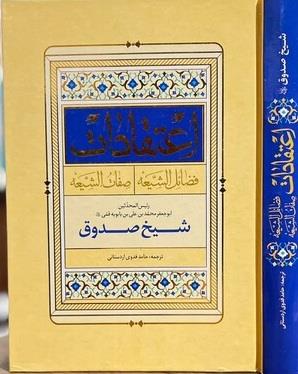 اعتقادات
فضائل الشیعه | صفات الشیعه
رئیس المحدّثین
ابوجعفر محمّد بن علی بن بابویه قمی
شیخ صدوق
ترجمه: حامد فدوی اردستانی
شیخ صدوق
اعتقادات
فضائل الشیعه
صفات الشیعه
ترجمه: حامد فدوی اردستانی